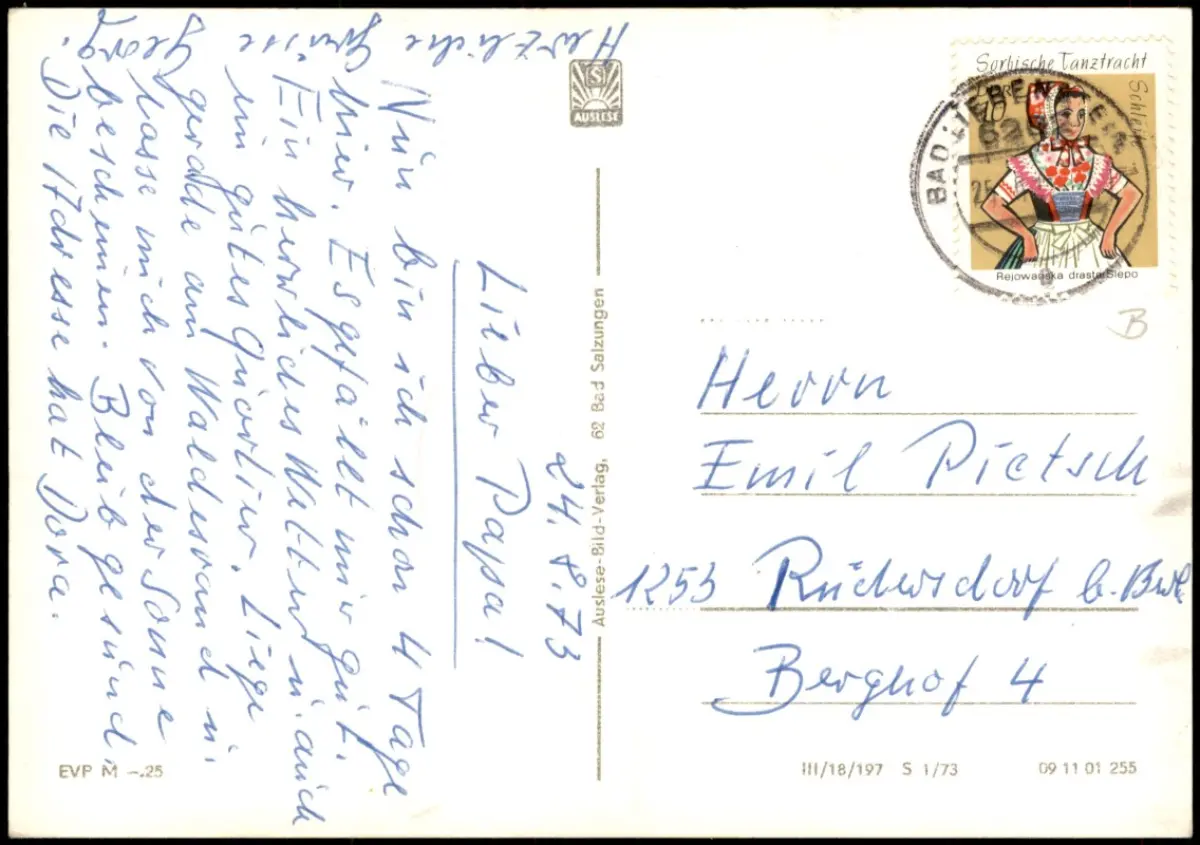 24. 8. 73
Lieber Papa!
Nun bin ich schon 4 Tage
hier. Es gefällt mir gut.
Ein herrliches Wetter u. auch
ein gutes Quartier. Liege
gerade am Waldesrand u.
lasse mich von der Sonne
bescheinen. Bleib gesund.
Die Adresse hat Dora.
Herzliche Grüsse
Georg.
EVP M –.25
S
AUSLESE
Auslese-Bild-Verlag, 62 Bad Salzungen
Sorbische Tanztracht
Schleife
DDR
10
Rejowanska drasta Slepo
BAD LIEBENSTEIN
620
25.
B
Herrn
Emil Pietsch
1253 Rüdersdorf b. Bln.
Berghof 4
III/18/197 S 1/73 09 11 01 255